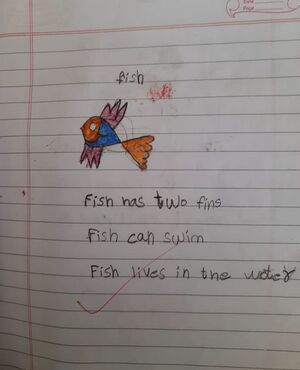 Date
Page
fish
Fish has two fins
Fish can swim
Fish lives in the water